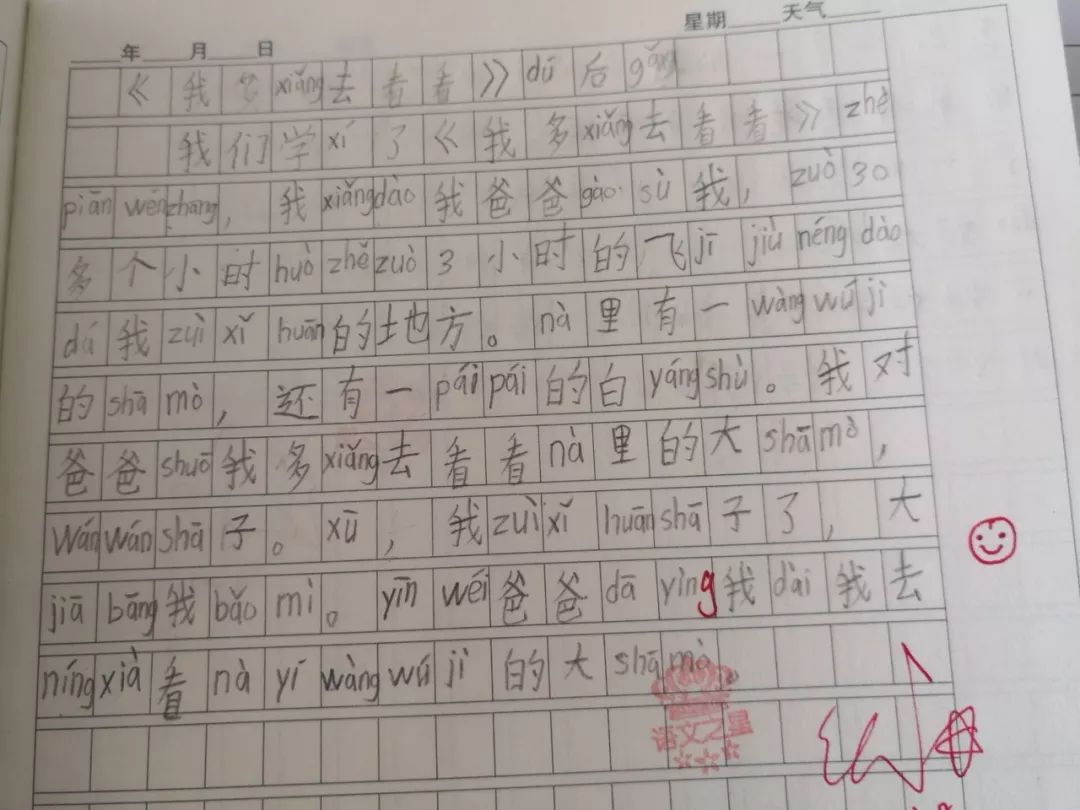 星期 天气
年 月 日
《我多xiǎng去看看》dú后gǎn
我们学xí了《我多xiǎng去看看》zhè
piān wénzhang，我xiǎngdào我爸爸gào sù我，zuò 30
多个小时huò zhě zuò 3小时的飞jī jiù néng dào
dá我zuì xǐ huān的地方。nà里有一wàng wú jì
的shā mò，还有一pái pái的白yáng shù。我对
爸爸shuō我多xiǎng去看看nà里的大shā mò，
wán wán shā子。xū，我zuì xǐ huān shā子了，大
jiā bāng我bǎo mì。yīn wéi爸爸dā yìng我dài我去
níng xià看nà yí wàng wú jì的大shā mò
语文之星